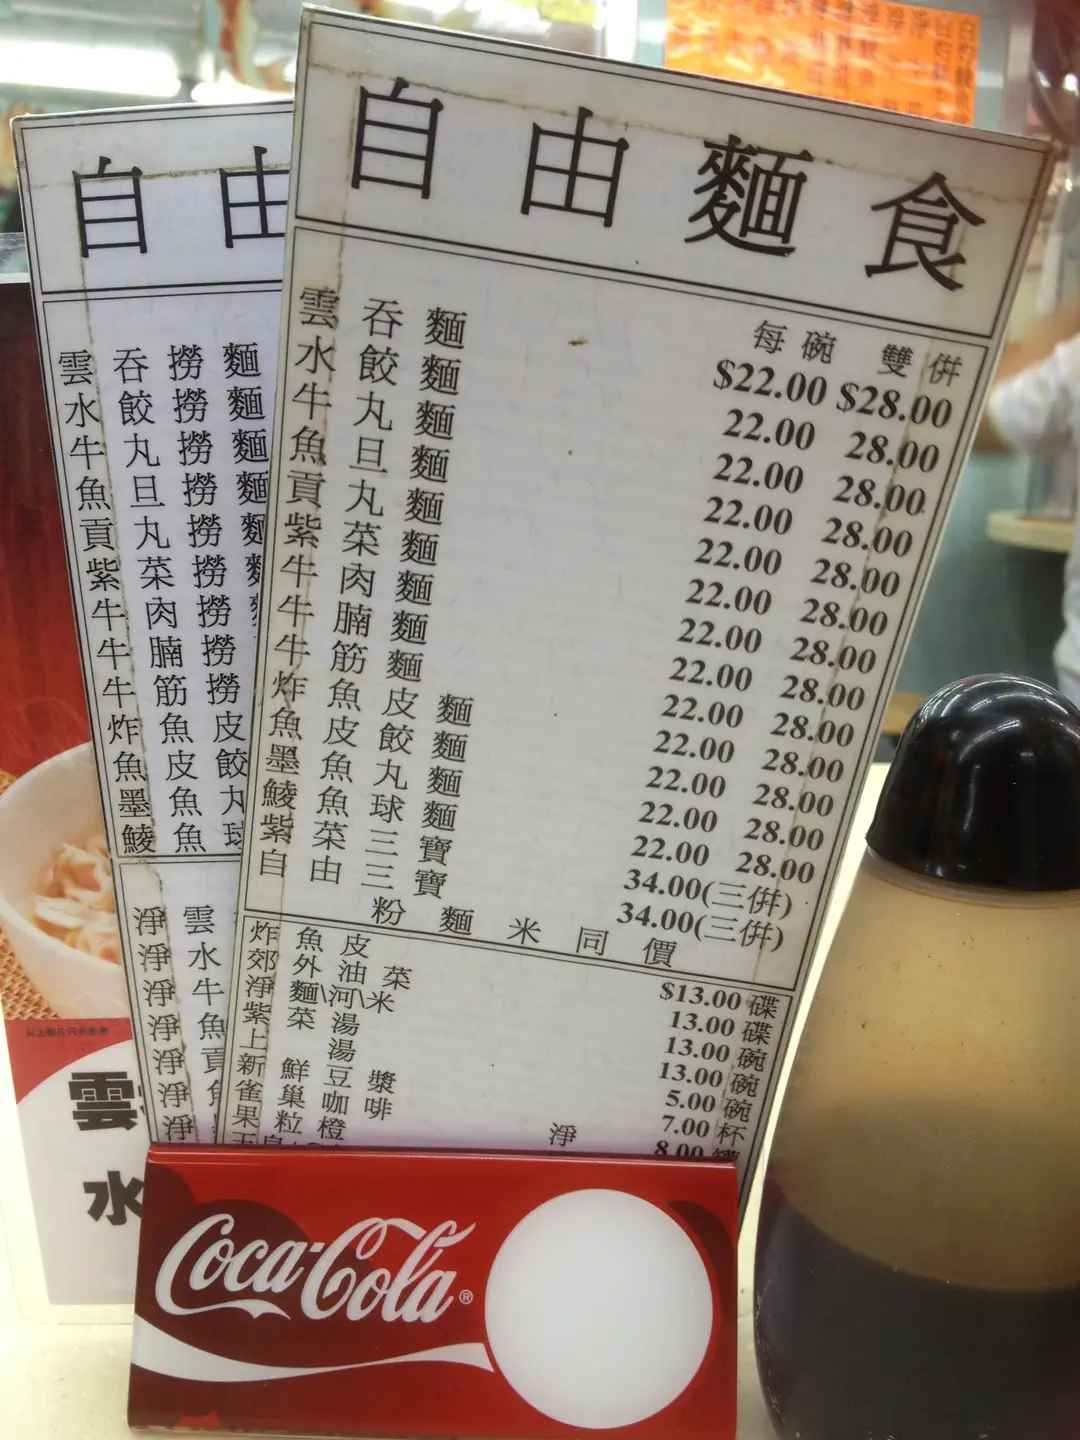 自由麵食
每碗 雙併
雲吞麵 $22.00 $28.00
水餃麵 22.00 28.00
牛丸麵 22.00 28.00
魚旦麵 22.00 28.00
貢丸麵 22.00 28.00
紫菜麵 22.00 28.00
牛肉麵 22.00 28.00
牛腩麵 22.00 28.00
牛筋麵 22.00 28.00
炸魚皮麵 22.00 28.00
魚皮餃麵 22.00 28.00
墨魚丸麵 22.00 28.00
鯪魚球麵 22.00 28.00
紫菜三寶 34.00(三併)
自由三寶 34.00(三併)
粉麵米同價
炸魚皮 $13.00碟
郊外油菜 13.00碟
淨麵\河\米 13.00碗
紫菜湯 13.00碗
上湯 5.00碗
新鮮豆漿 7.00杯
雀巢咖啡 8.00
果粒橙
淨
自由
雲吞撈麵
水餃撈麵
牛丸撈麵
魚旦撈麵
貢丸撈麵
紫菜撈
牛肉撈
牛腩撈
牛筋撈
炸魚皮
魚皮餃
墨魚丸
鯪魚球
淨雲
淨水
淨牛
淨魚
淨貢
淨
淨
雲
水
Coca-Cola®